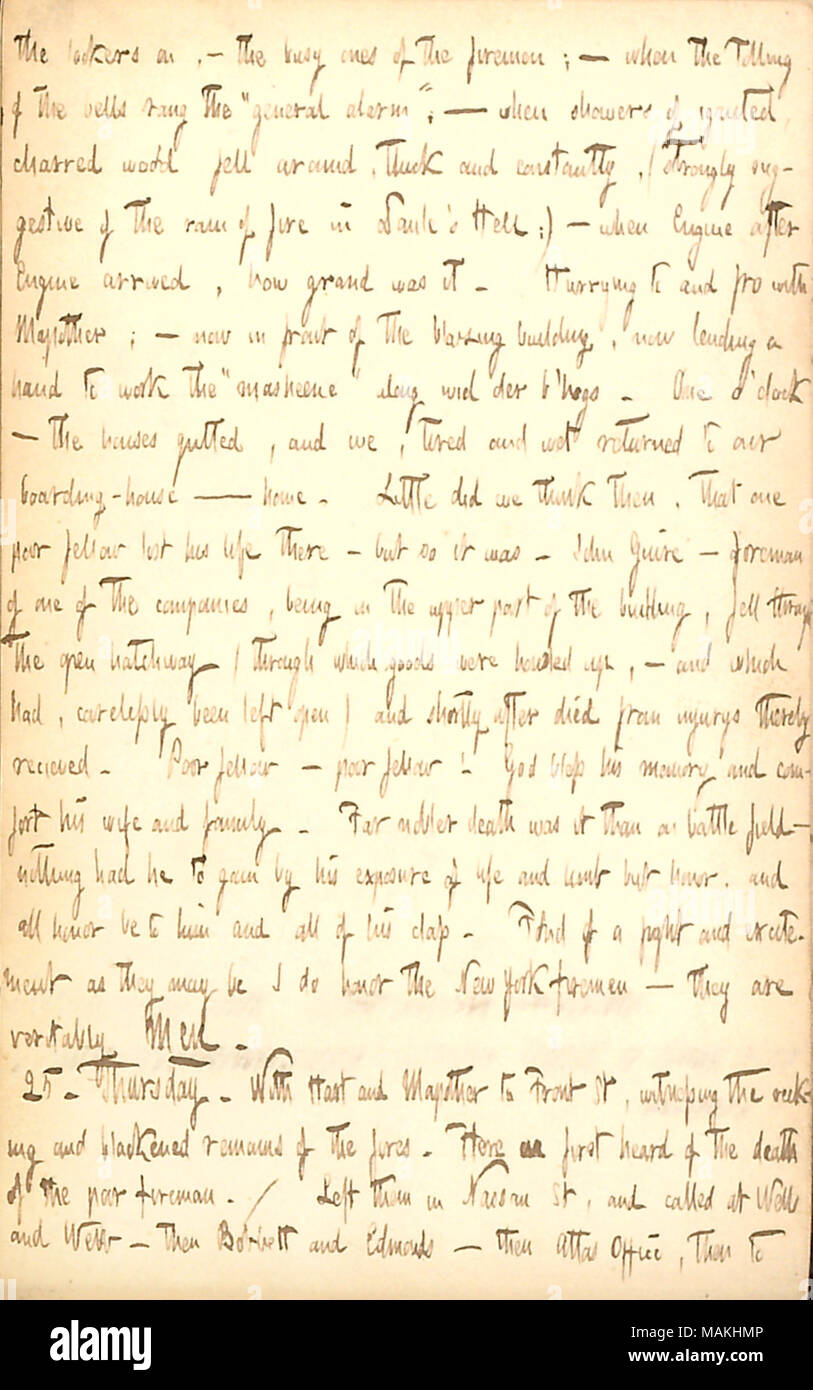 the lookers on, - the busy ones of the firemen ; - when the Tolling
of the bells rang the "general alarm"; - when showers of ignited,
charred wood fell around, thick and constantly, ( strongly sug-
gestive of the rain of fire in Dante's Hell ;) - when Engine after
Engine arrived, how grand was it - Hurrying to and fro with
Mapother ; - now in front of the blazing building, now lending a
hand to work the "masheene" along wid der b'hoys - One o'clock
- the houses gutted, and we, tired and wet returned to our
boarding-house — home - Little did we think then, that one
poor fellow lost his life there - but so it was - John Guire - foreman
of one of the companies, being in the upper part of the building, fell through
the open hatchway ( through which goods were hoisted up, - and which
had, carelessly been left open ) and shortly after died from injurys thereby
recieved - Poor fellow - poor fellow ! God bless his memory and com-
fort his wife and family - Far nobler death was it than on battle field -
nothing had he to gain by his exposure of life and limb but honor, and
all honor be to him and all of his class - Fond of a fight and excite-
ment as they may be I do honor the New York firemen - they are
veritably Men -
25 - Thursday - With Hart and Mapother to Front St, witnessing the reek-
ing and blackened remains of the fires - Here first heard of the death
of the poor fireman - / Left them in Nassau St, and called at Wells
and Webb - then Bobbett and Edmonds - then Atlas Office, then to
alamy
Image ID: MAKHMP
www.alamy.com